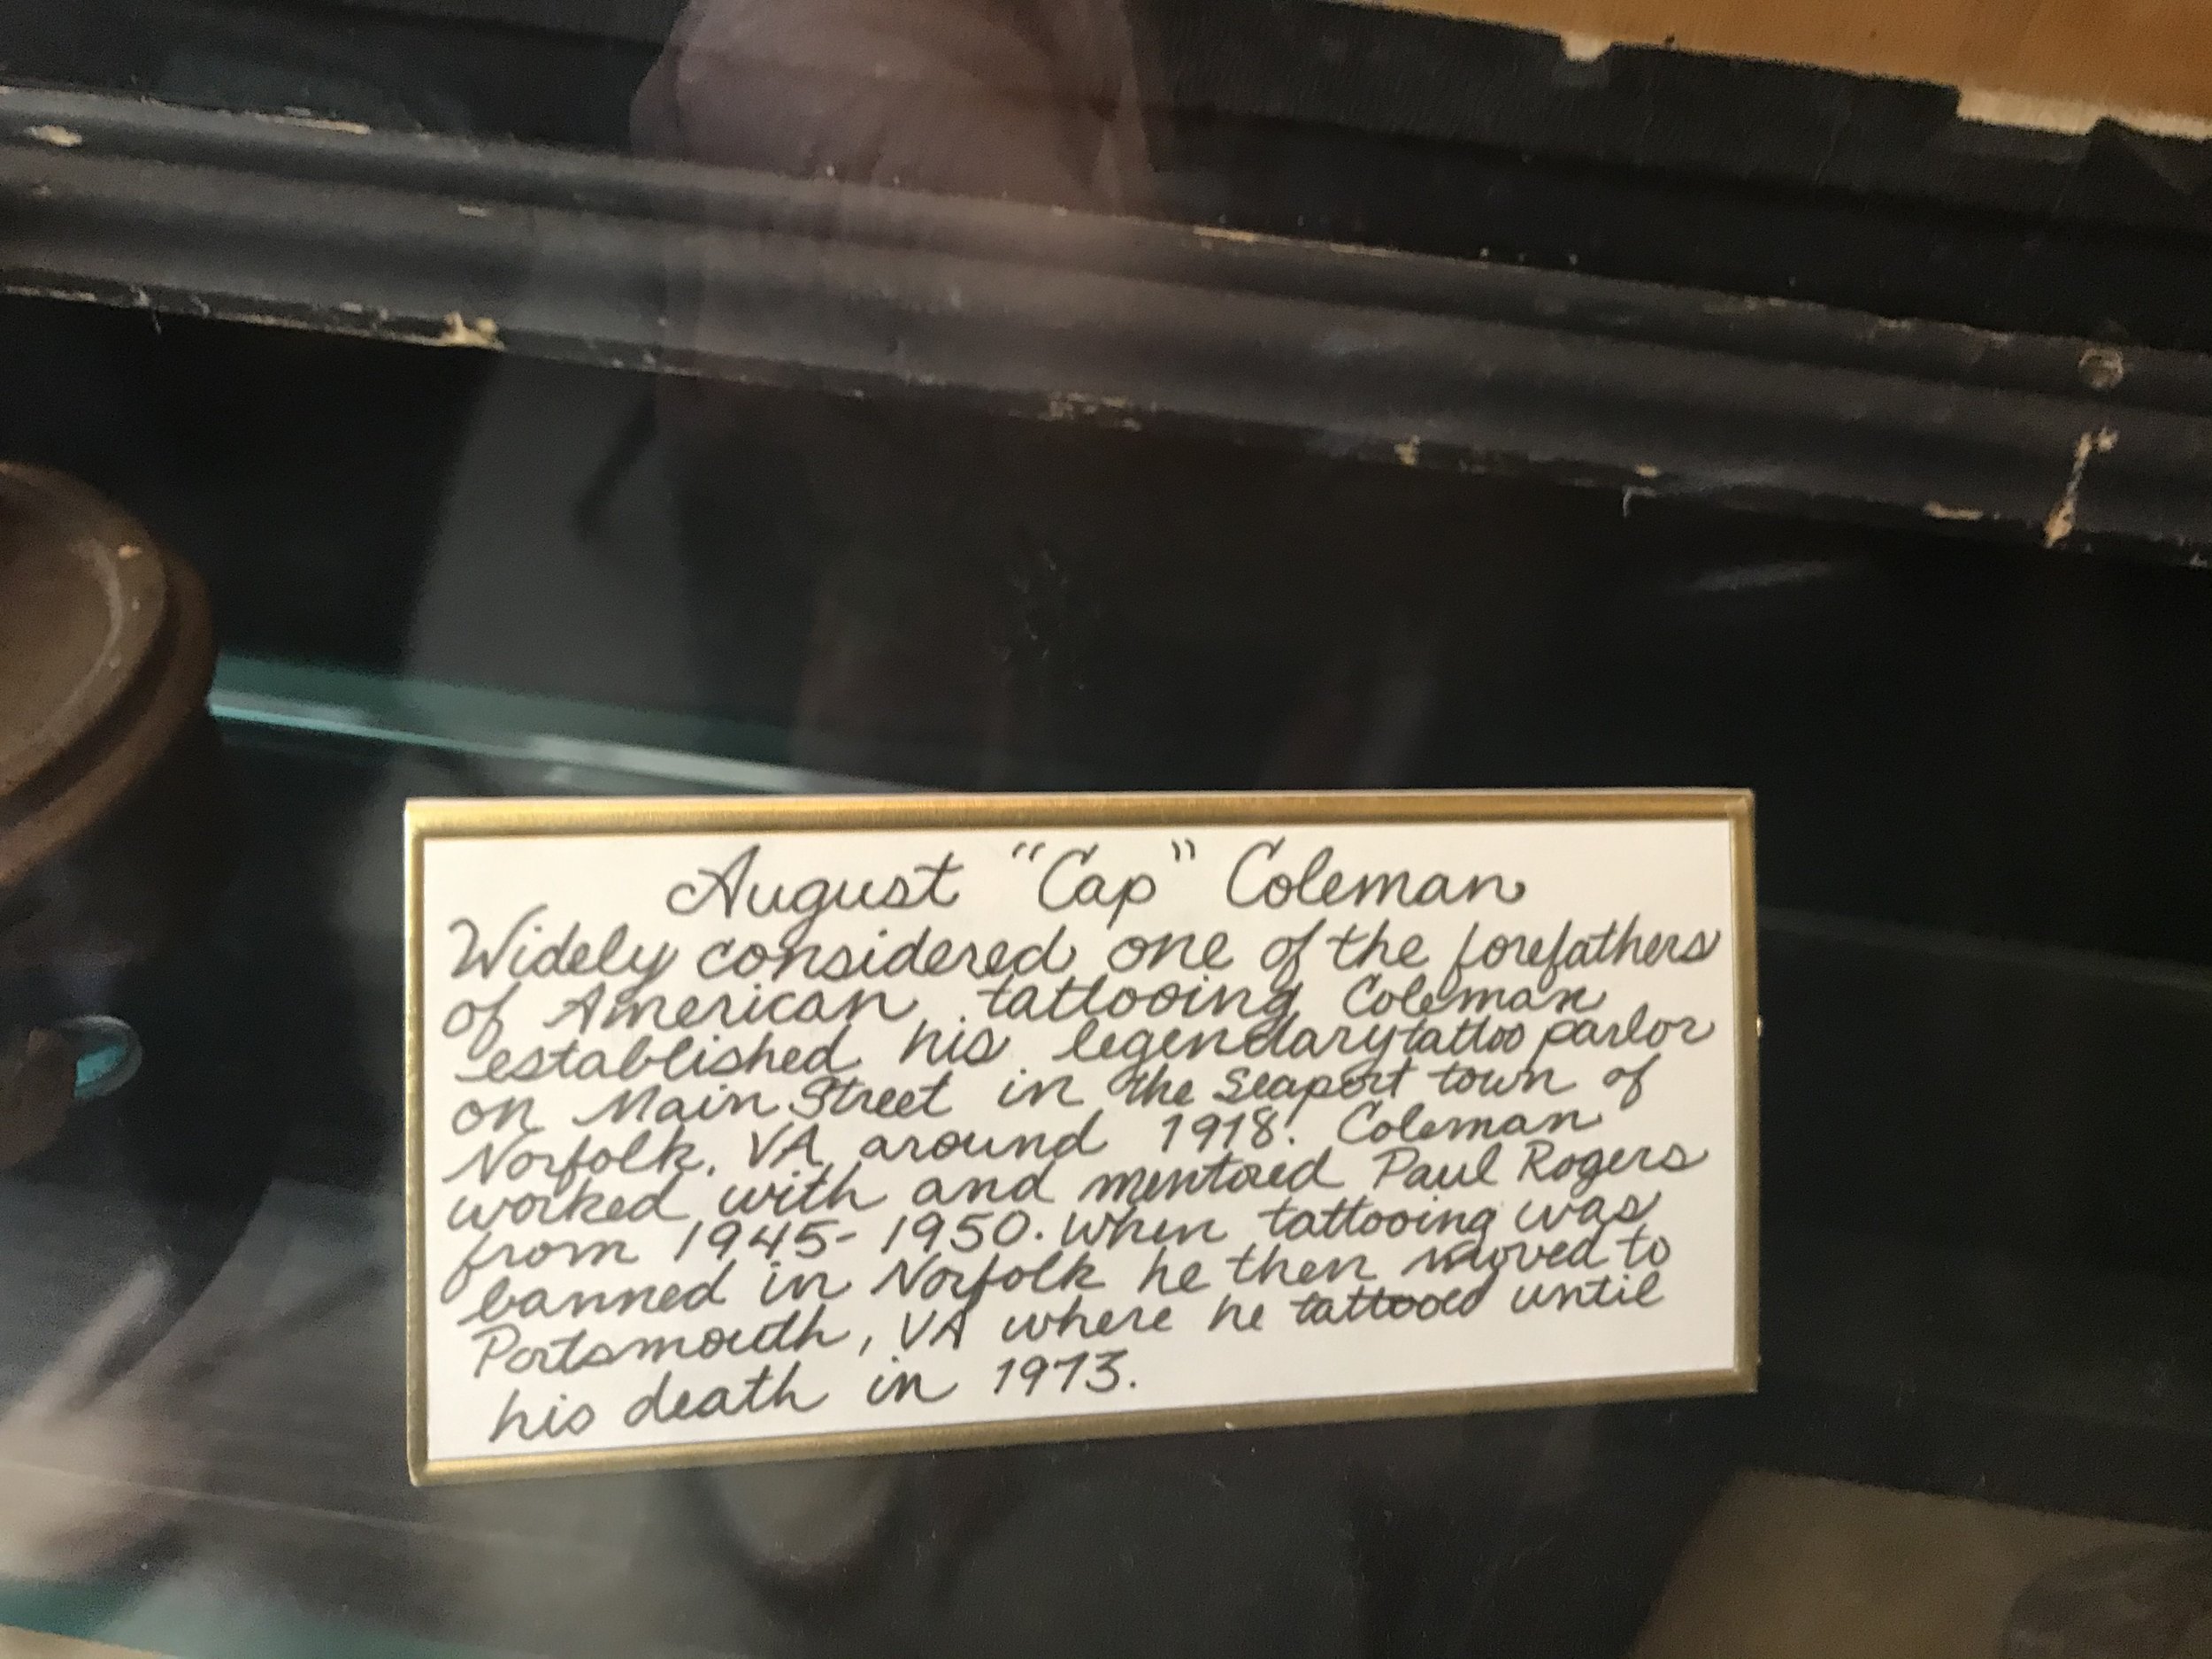 August "Cap" Coleman
Widely considered one of the forefathers
of American tattooing Coleman
established his legendary tattoo parlor
on Main Street in the Seaport town of
Norfolk, VA around 1918. Coleman
worked with and mentored Paul Rogers
from 1945-1950. When tattooing was
banned in Norfolk he then moved to
Portsmouth, VA where he tattooed until
his death in 1973.